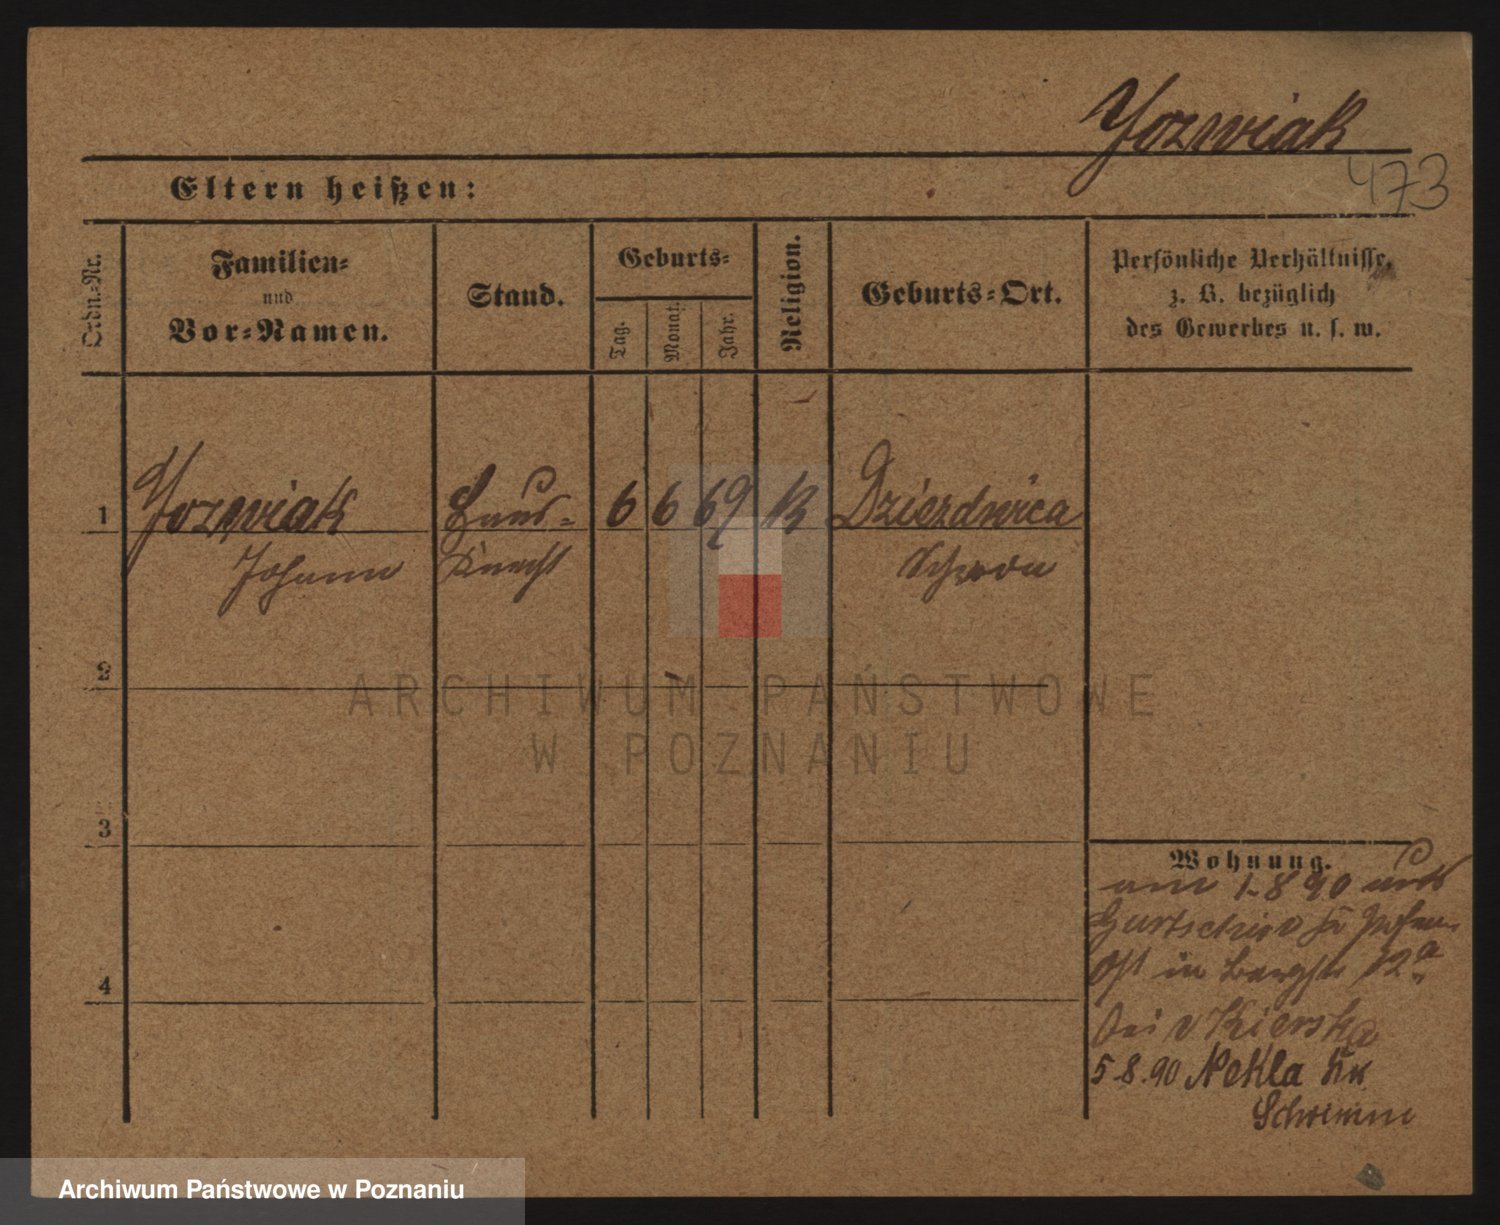 Jozwiak
473
Eltern heißen:
Ordn.-Nr.
Familien-
und
Vor-Namen.
Stand.
Geburts-
Tag.
Monat.
Jahr.
Religion.
Geburts-Ort.
Persönliche Verhältnisse,
z. B. bezüglich
des Gewerbes u. s. w.
1
Jozwiak
Johann
Haus-
Knecht
6 6 69
K
Dziezdnica
2
3
4
Wohnung.
am 1-8 90 aus
in Bergstr 12a
bei v Kierska
5-8.90 Nekla Kr.
ARCHIWUM PAŃSTWOWE
W POZNANIU
Archiwum Państwowe w Poznaniu